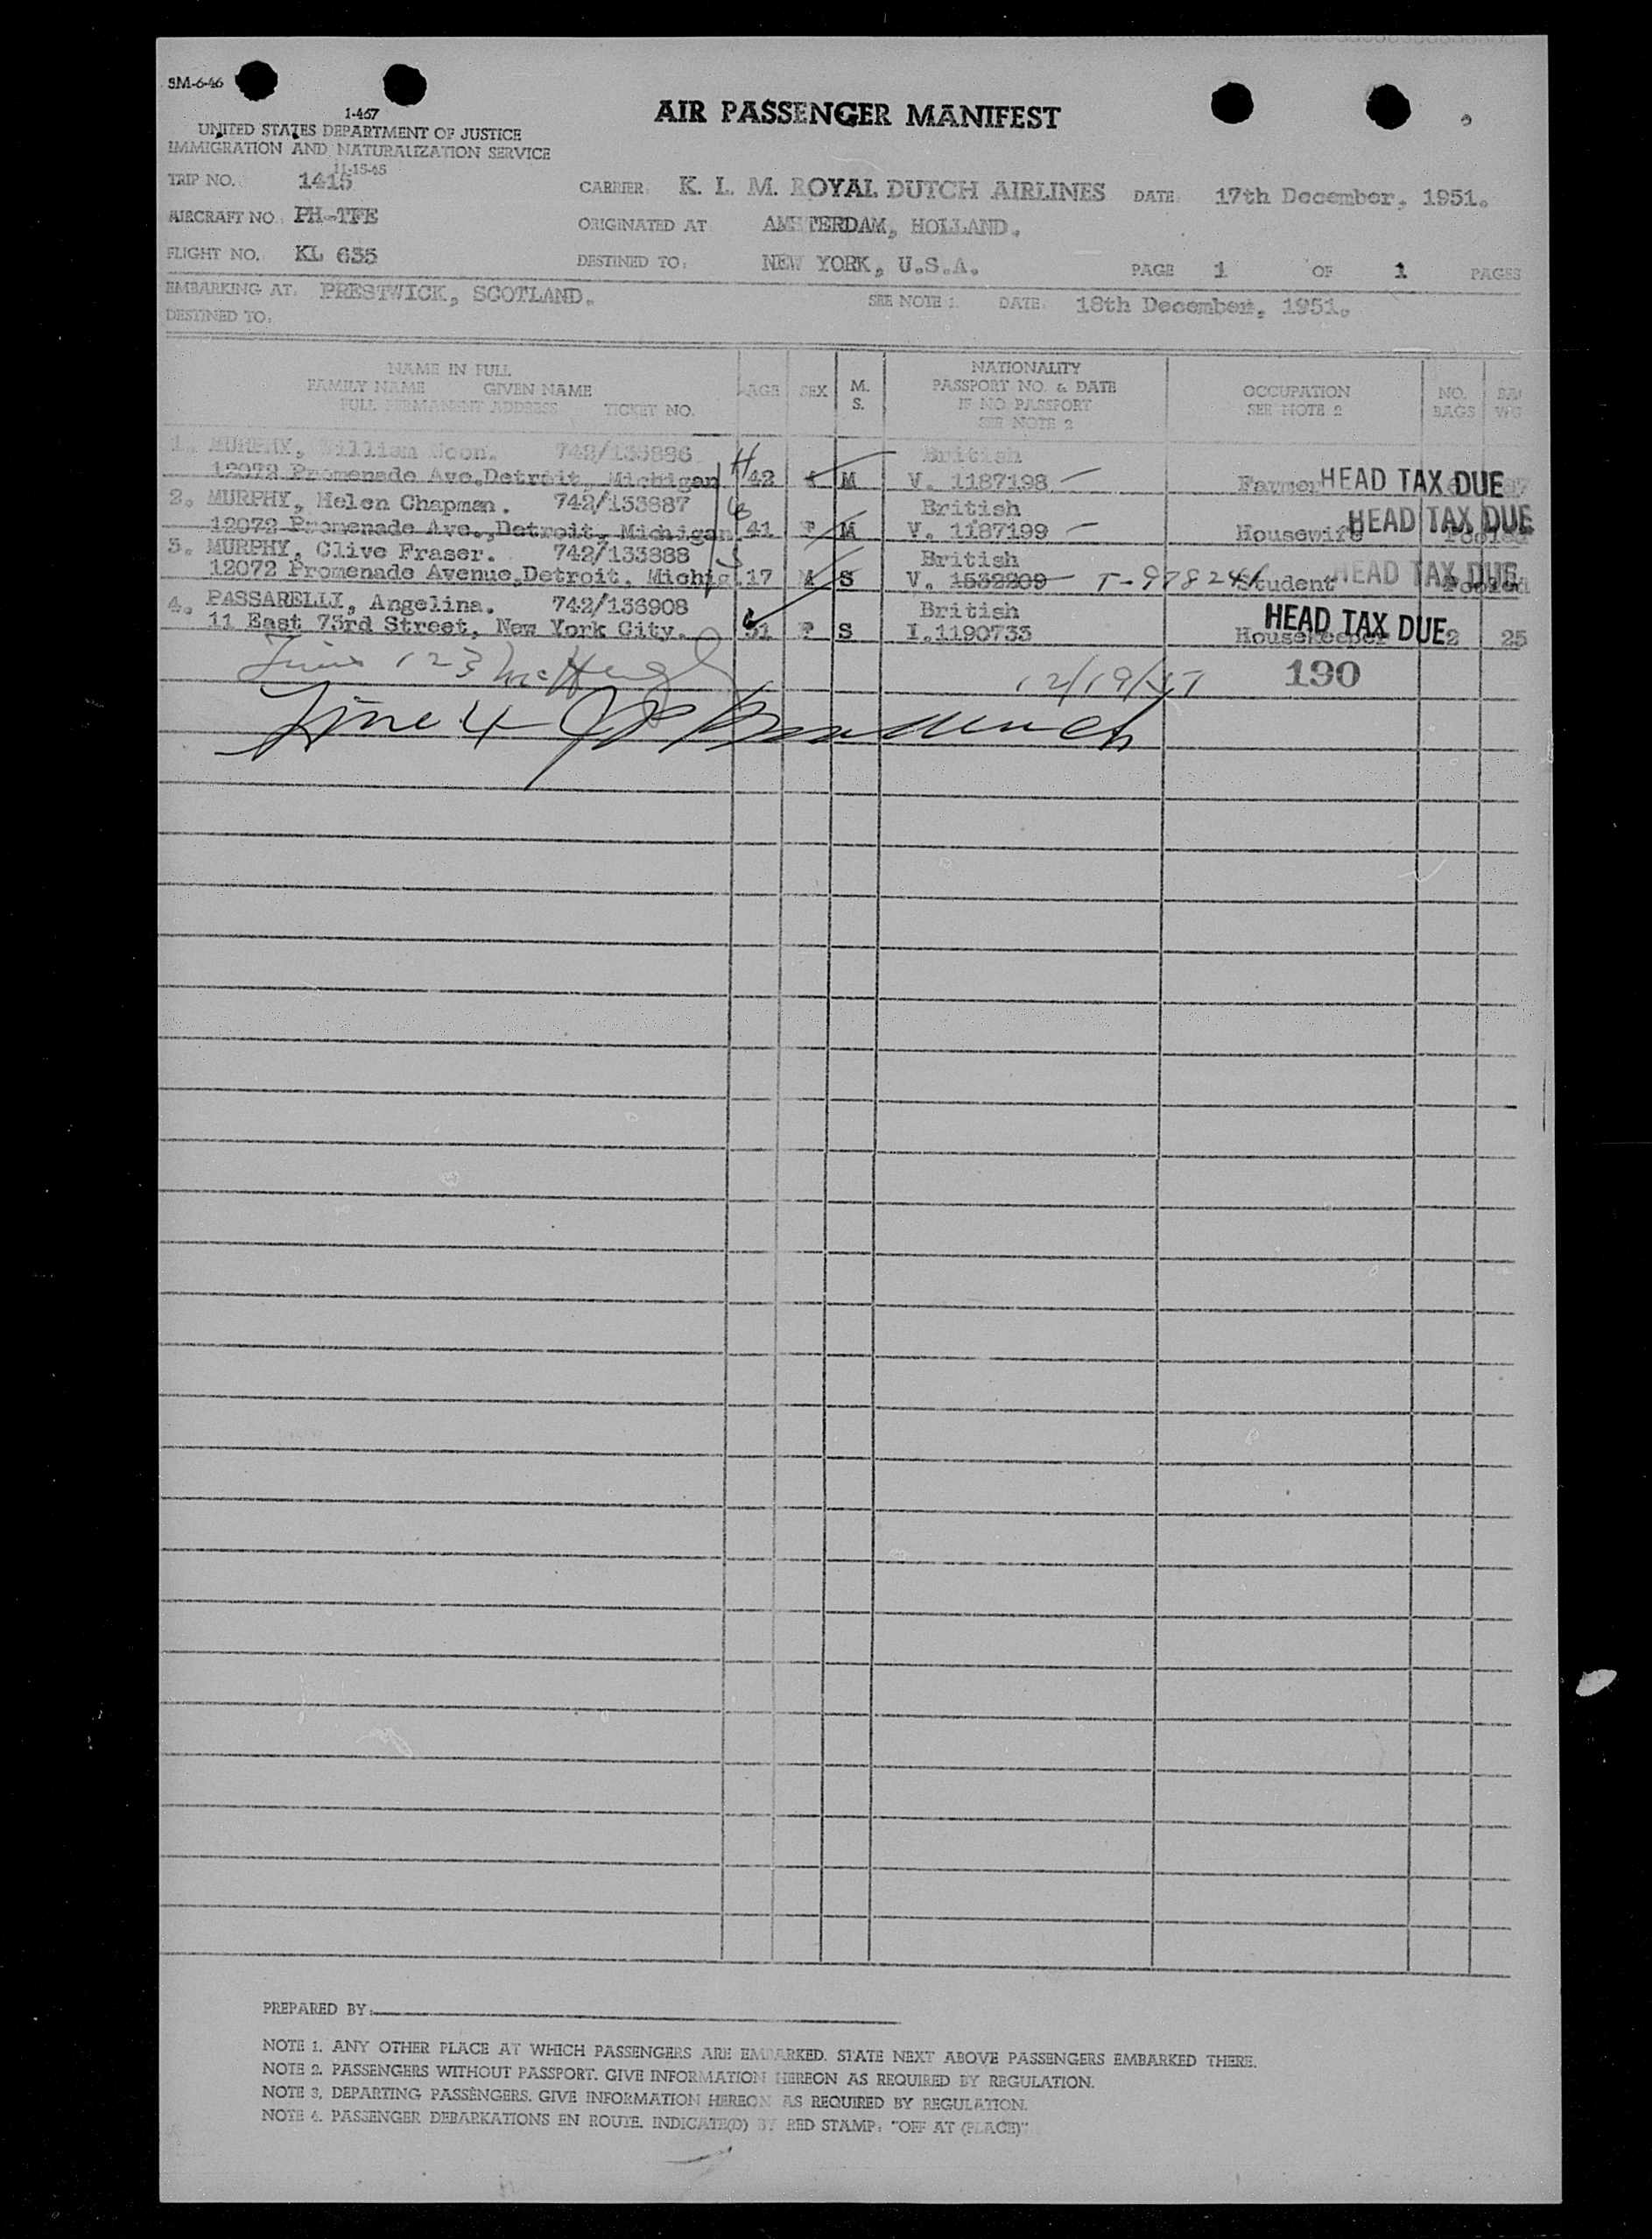 SM-6-46
1-467
AIR PASSENGER MANIFEST
UNITED STATES DEPARTMENT OF JUSTICE
IMMIGRATION AND NATURALIZATION SERVICE
11-15-45
TRIP NO. 1415 CARRIER: K. L. M. ROYAL DUTCH AIRLINES DATE: 17th December, 1951.
AIRCRAFT NO. PH-TFE ORIGINATED AT AMSTERDAM, HOLLAND.
FLIGHT NO. KL 635 DESTINED TO: NEW YORK, U.S.A. PAGE 1 OF 1 PAGES
EMBARKING AT. PRESTWICK, SCOTLAND. SEE NOTE 1. DATE: 18th December, 1951.
DESTINED TO:
NAME IN FULL
FAMILY NAME GIVEN NAME
FULL PERMANENT ADDRESS TICKET NO.
AGE SEX M. S.
NATIONALITY
PASSPORT NO. & DATE
IF NO PASSPORT
SEE NOTE 2
OCCUPATION
SEE NOTE 2
NO. BAGS
1. MURPHY, William Noon. 742/133886 British
12072 Promenade Ave,Detroit, Michigan H 42 M V. 1187198 Farmer HEAD TAX DUE
2. MURPHY, Helen Chapman. 742/133887 British
12072 Promenade Ave.,Detroit, Michigan 41 F M V. 1187199 Housewife HEAD TAX DUE Pooled
3. MURPHY, Clive Fraser. 742/133888 British
12072 Promenade Avenue,Detroit, Michig 17 M S V. 1532209 T-978241 Student HEAD TAX DUE Pooled
4. PASSARELLI, Angelina. 742/136908 British
11 East 73rd Street, New York City. 31 F S I.1190733 Housekeeper HEAD TAX DUE 2 25
Lines 1 2 3 McHugh 12/19/51 190
Line 4
PREPARED BY:
NOTE 1. ANY OTHER PLACE AT WHICH PASSENGERS ARE EMBARKED. STATE NEXT ABOVE PASSENGERS EMBARKED THERE.
NOTE 2. PASSENGERS WITHOUT PASSPORT. GIVE INFORMATION HEREON AS REQUIRED BY REGULATION.
NOTE 3. DEPARTING PASSENGERS. GIVE INFORMATION HEREON AS REQUIRED BY REGULATION.
NOTE 4. PASSENGER DEBARKATIONS EN ROUTE. INDICATE(D) BY RED STAMP: "OFF AT (PLACE)"